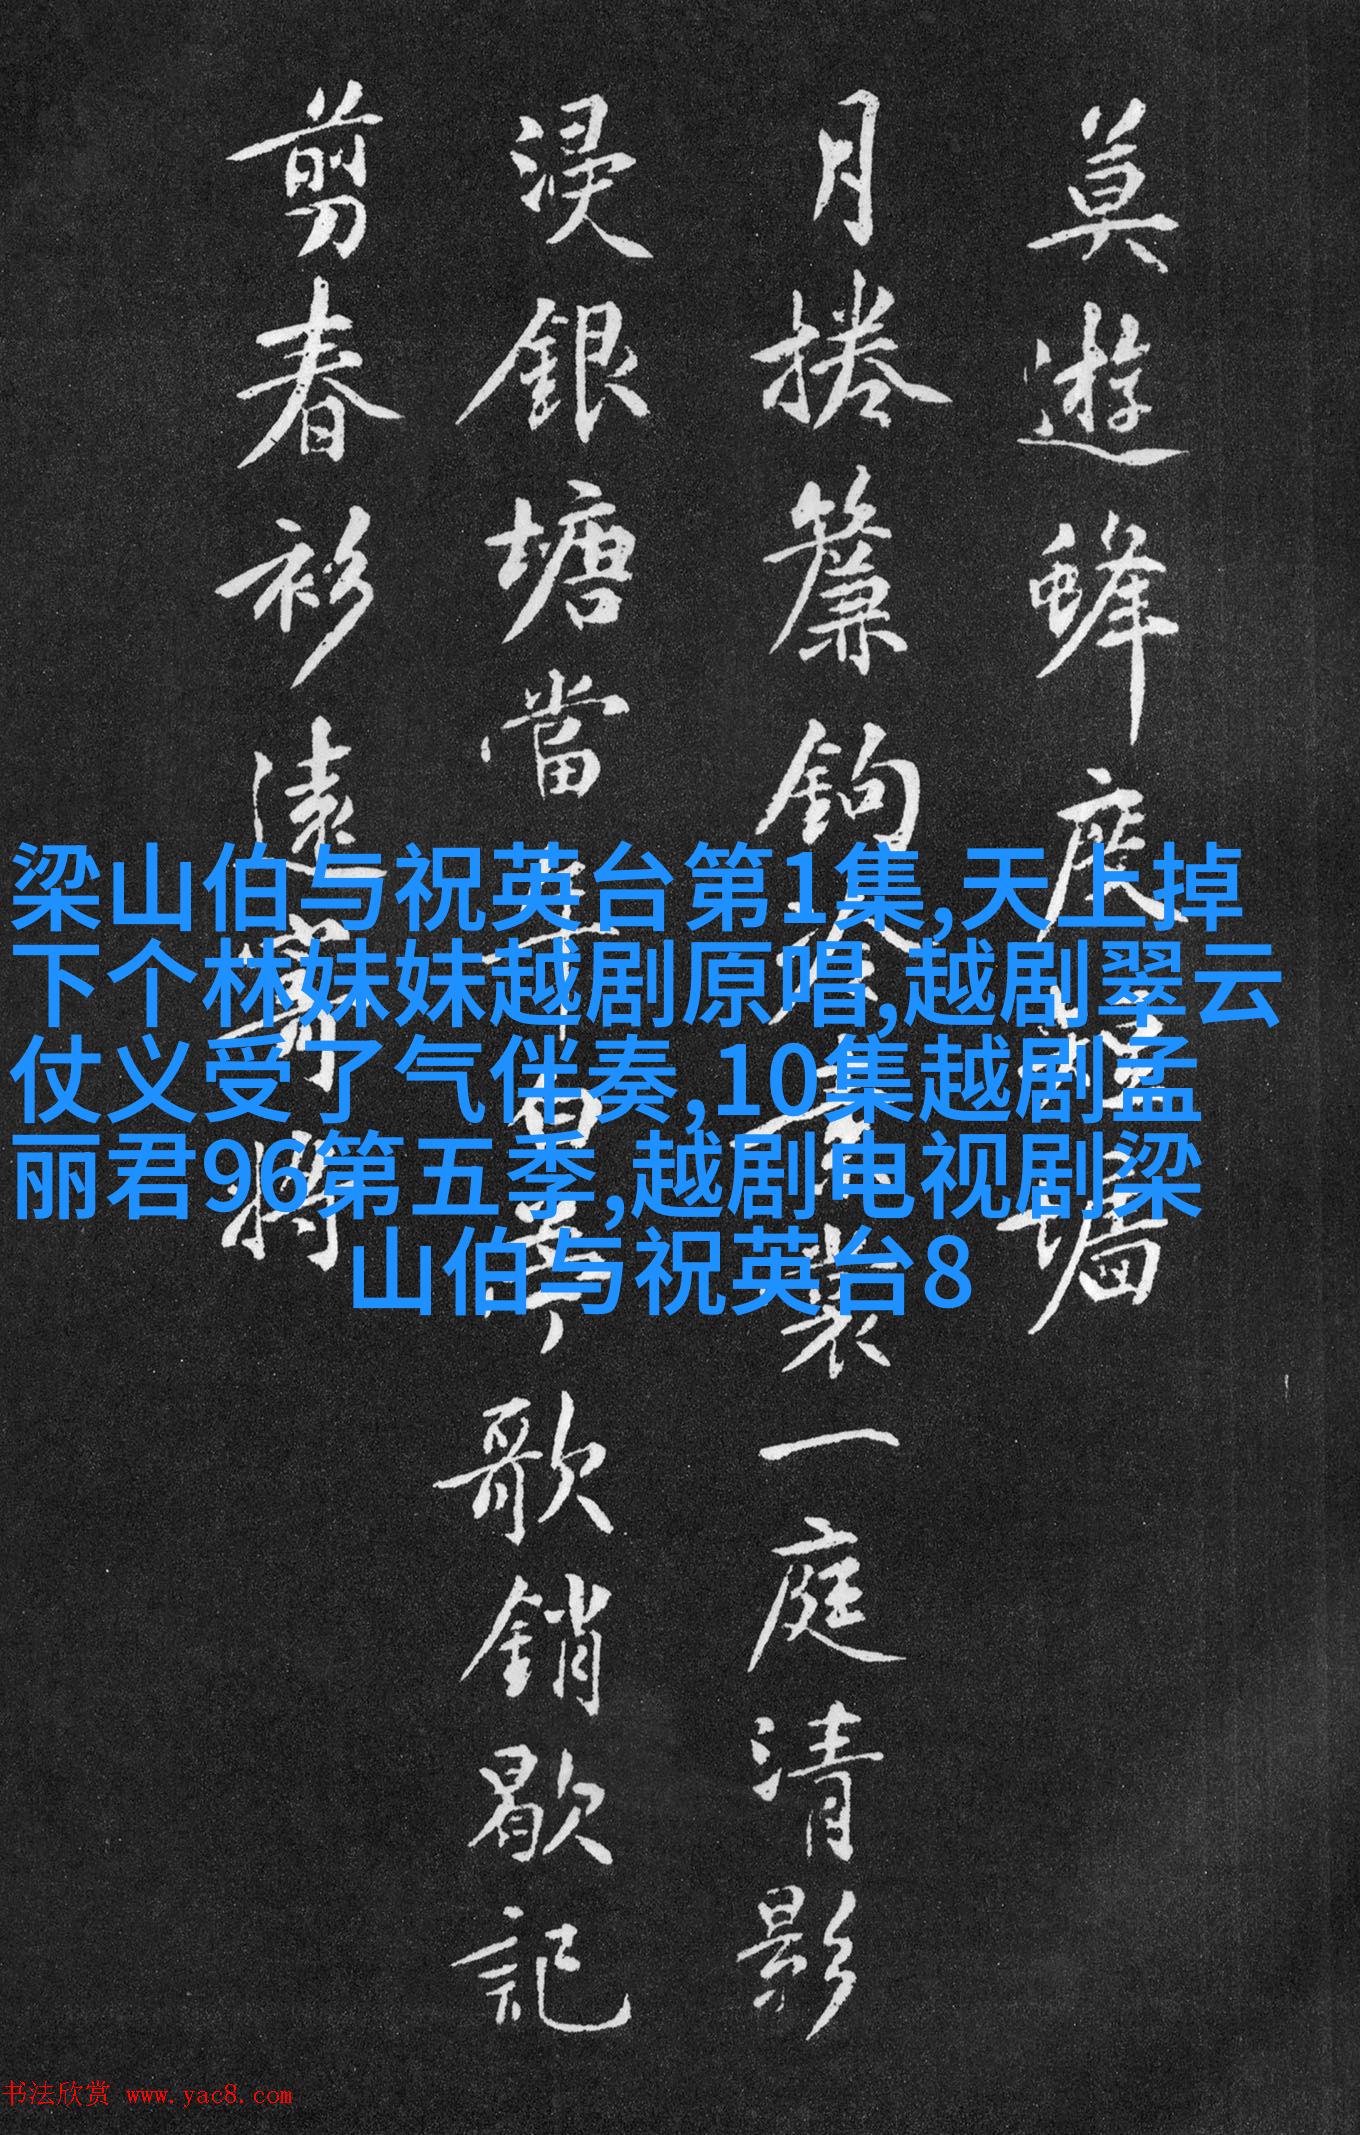 莫遊蜂座
墻
月捲簾鉤
裳一庭清影
浸銀塘當年
歌銷歇記
剪春衫遠寄將
梁山伯与祝英台第1集,天上掉
下个林妹妹越剧原唱,越剧翠云
仗义受了气伴奏,10集越剧孟
丽君96第五季,越剧电视剧梁
山伯与祝英台8
书法欣赏 www.yac8.com